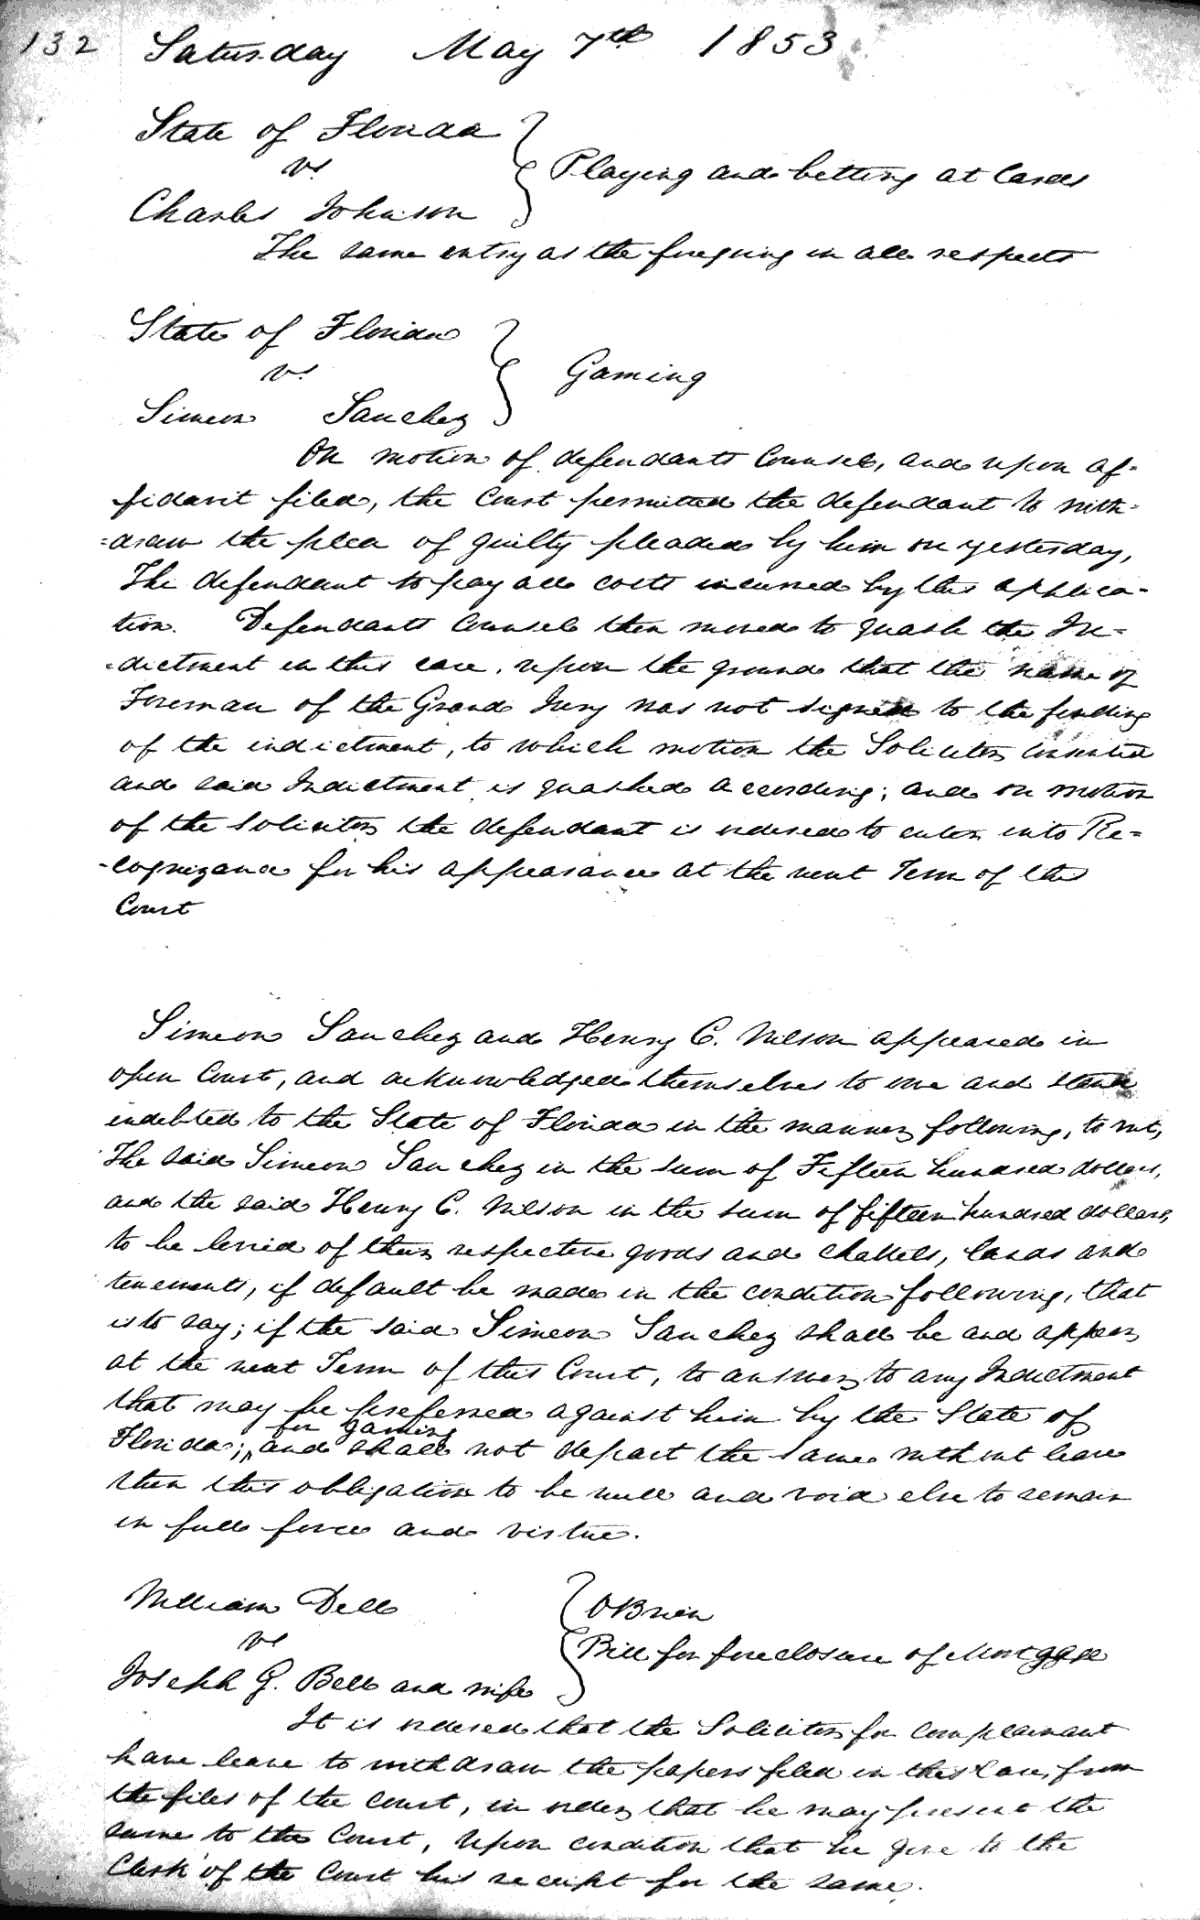 132 Saturday May 7th 1853
State of Florida
vs
Playing and betting at Cards
Charles Johnson
The same entry as the foregoing in all respects
State of Florida
vs
Gaming
Simeon Sanchez
On motion of defendants Counsel, and upon af-
fidavit filed, the Court permitted the defendant to with-
=draw the plea of guilty pleaded by him on yesterday,
The defendant to pay all costs incurred by this applica-
tion. Defendants Counsel then moved to quash the In=
=dictment in this case, upon the ground that the name of
Foreman of the Grand Jury was not signed to the finding
of the indictment, to which motion the Solicitor consented
and said Indictment is quashed according; and on motion
of the Solicitor the defendant is ordered to enter into Re=
-cognizance for his appearance at the next Term of this
Court
Simeon Sanchez and Henry C. Wilson appeared in
open Court, and acknowledged themselves to owe and stand
indebted to the State of Florida in the manner following, to wit,
The said Simeon Sanchez in the sum of Fifteen hundred dollars,
and the said Henry C. Wilson in the sum of fifteen hundred dollars,
to be levied of their respective goods and chattels, lands and
tenements, if default be made in the condition following, that
is to say; if the said Simeon Sanchez shall be and appear
at the next Term of this Court, to answer to any Indictment
that may be preferred against him by the State of
for gaming
Florida; and shall not depart the same without leave
then this obligation to be null and void else to remain
in full force and virtue.
William Dell
OBrien
vs
Bill for foreclosure of Mortgage
Joseph G. Bell and wife
It is ordered that the Solicitor for Complainant
have leave to withdraw the papers filed in this Case, from
the files of the Court, in order that he may present the
same to the Court, upon condition that he give to the
Clerk of the Court his receipt for the same.